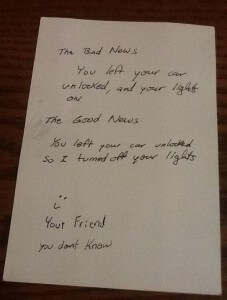 The Bad News
You left your car
unlocked, and your lights
on
The Good News
You left your car unlocked
so I turned off your lights
:)
Your Friend
you dont know